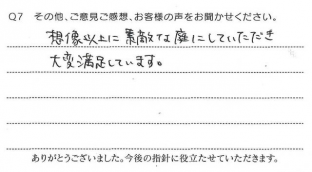 Q7 その他、ご意見ご感想、お客様の声をお聞かせください。
想像以上に素敵な庭にしていただき
大変満足しています。
ありがとうございました。今後の指針に役立たせていただきます。